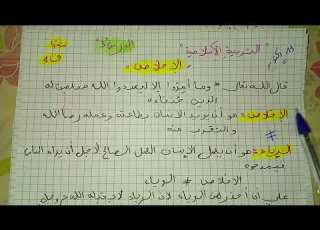 "التربية الإسلامية"
"الإخلاص"
قال الله تعالى "وما أمروا إلا ليعبدوا الله مخلصين له
الدين حنفاء"
الإخلاص: هو أن يريد الإنسان بطاعته وعمله رضا الله
والتقرب منه
الرياء: هو أن يعمل الإنسان العمل الصالح لأجل أن يراه الناس
فيمدحوه
الإخلاص ≠ الرياء
الرياء لأن الرياء لا الله عز وجل